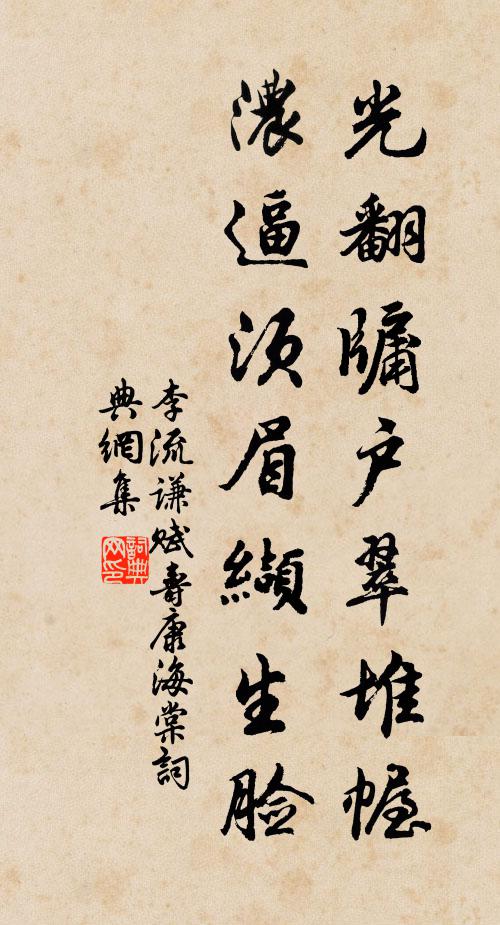 光翻牖户翠堆幄
濃逼须眉纈生臉
李流谦赋壽康海棠詞
典網集
詞典網印